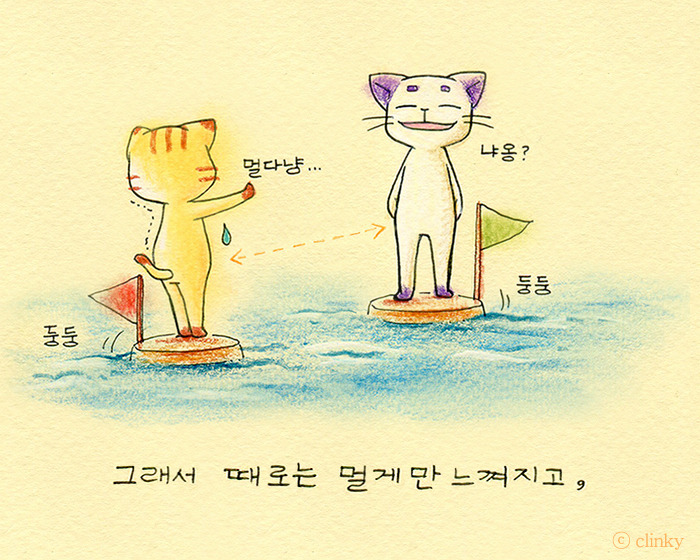 멀다냥...
냐옹?
둥둥
둥둥
그래서 때로는 멀게만 느껴지고,
ⓒ clinky